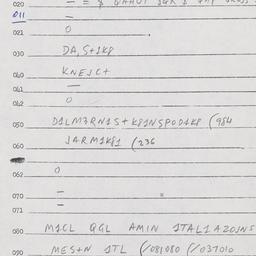 020
011 —
021 0
030 DA,S+1K8
040 KNEJC+
041 —
042 0
050 D1LM3RN1S+K81NSPOD1K8 (984
060 JARM1K81 (236
069 0
070 —
071 —
080 M1CL GGL AMIN 1TAL1AZOJNS
090 MES+N 1TL (/081080 (/037010